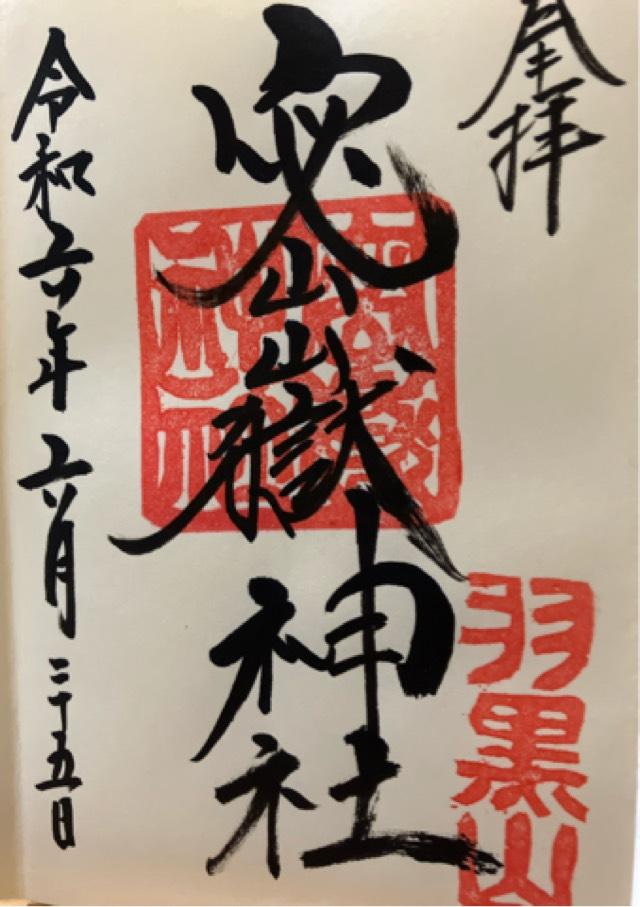 奉拝
羽黒山
密嶽神社
令和六年六月二十五日